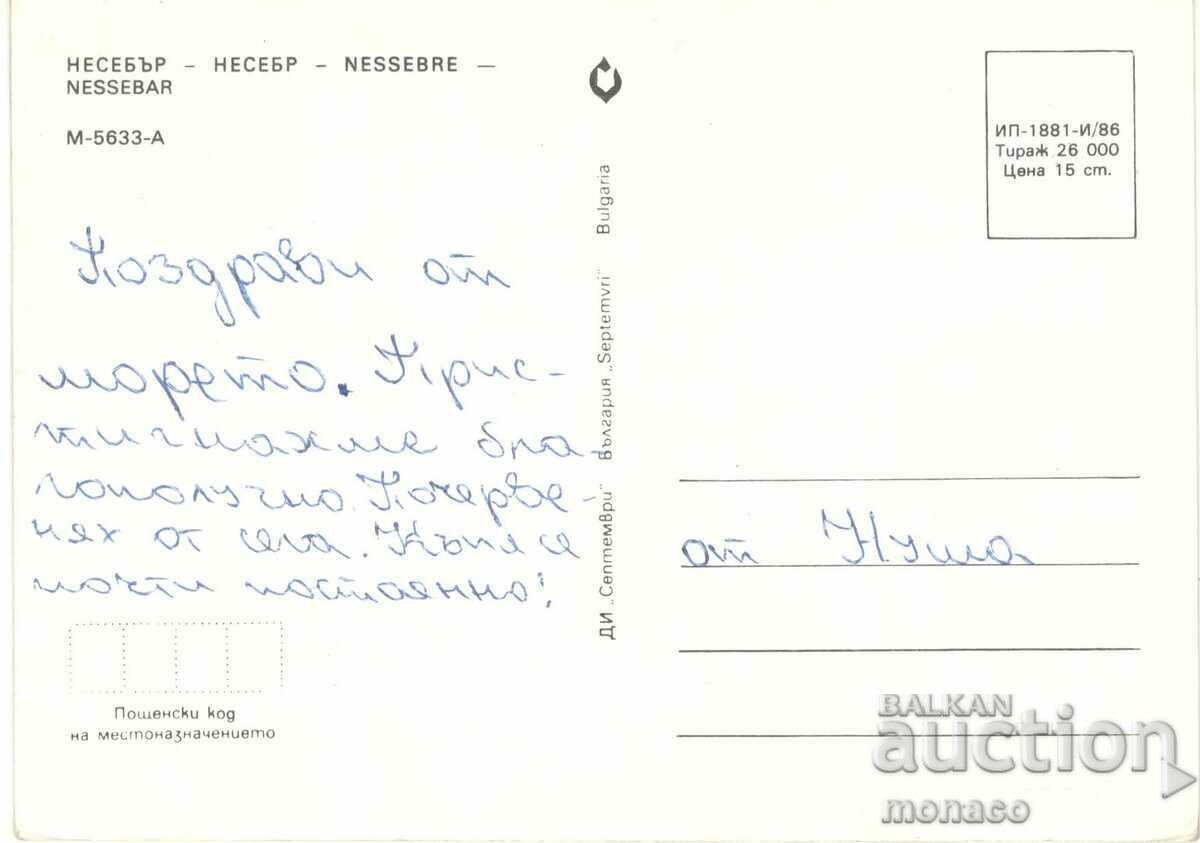 НЕСЕБЪР – НЕСЕБР – NESSEBRE –
NESSEBAR
М-5633-А
ИП-1881-И/86
Тираж 26 000
Цена 15 ст.
Поздрави от
морето. Прис-
тигнахме бла-
гополучно. Почерве-
нях от сега. Къпя се
почти постоянно!
ДИ „Септември" България „Septemvri" Bulgaria
от Нуша
Пощенски код
на местоназначението
BALKAN
auction
monaco